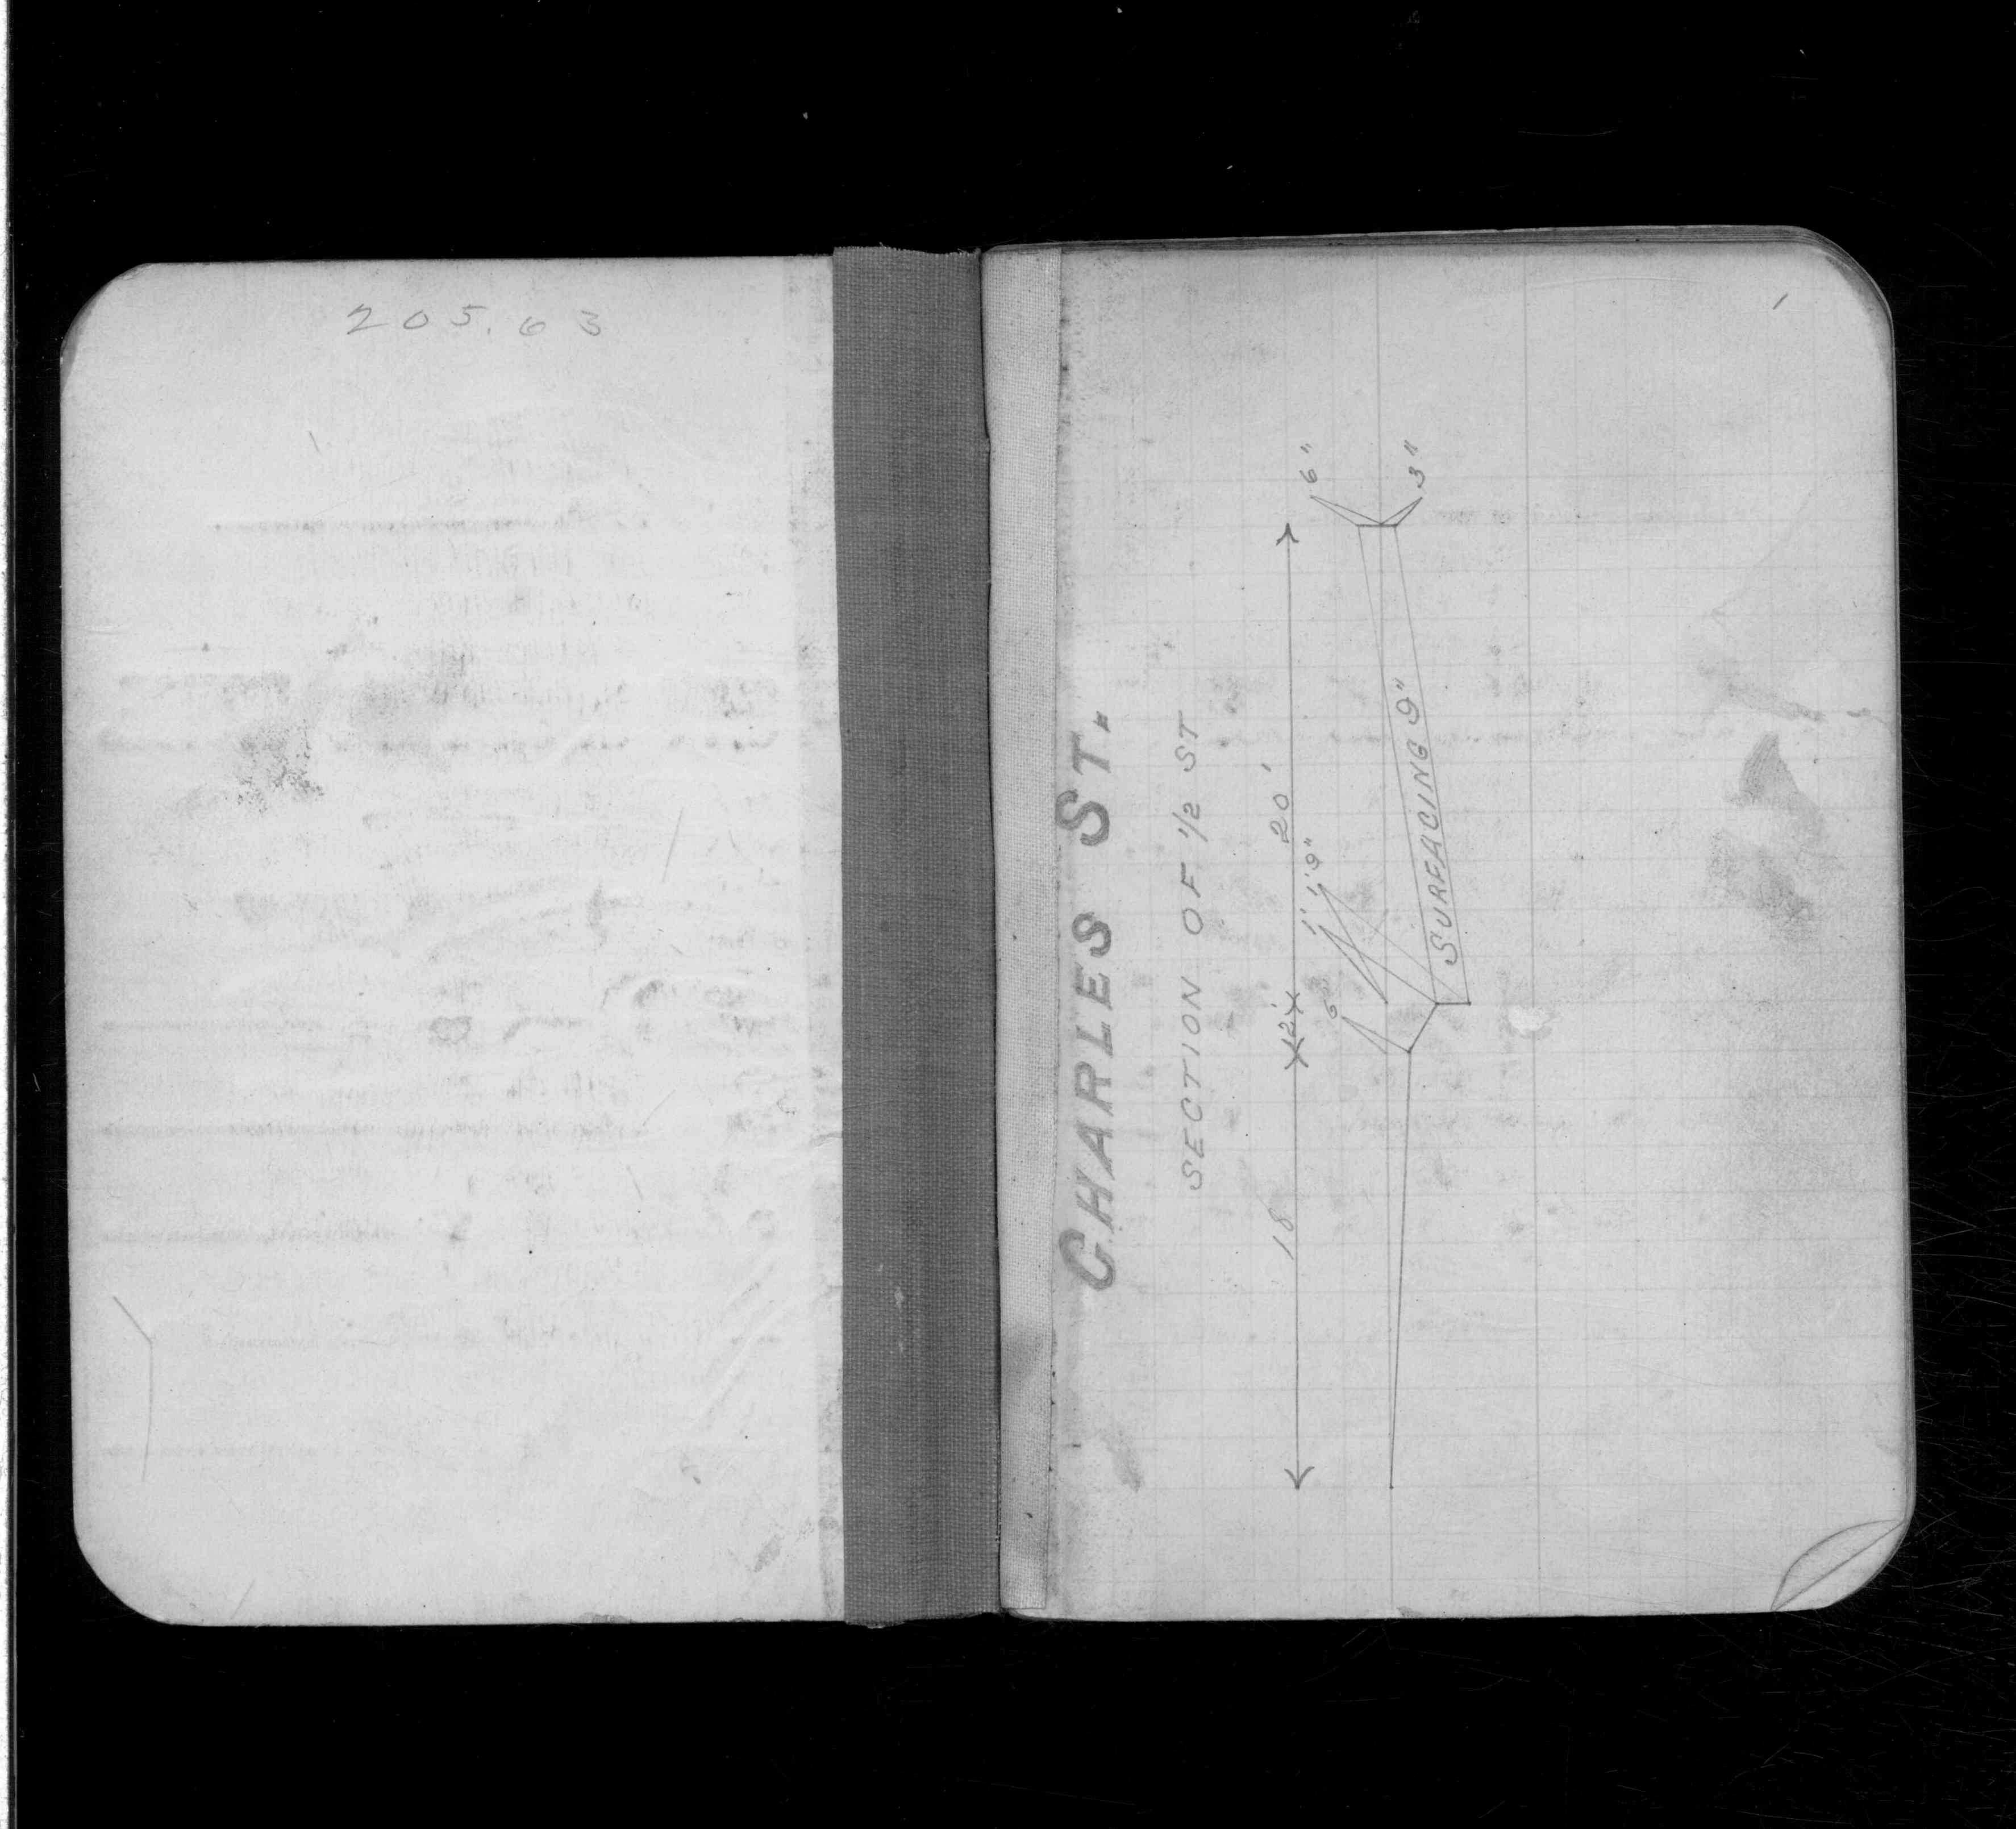 205.63
1
CHARLES ST.
SECTION OF 1/2 ST
18 2' 20'
6" 1' 1'9" 6"
3"
SURFACING 9"